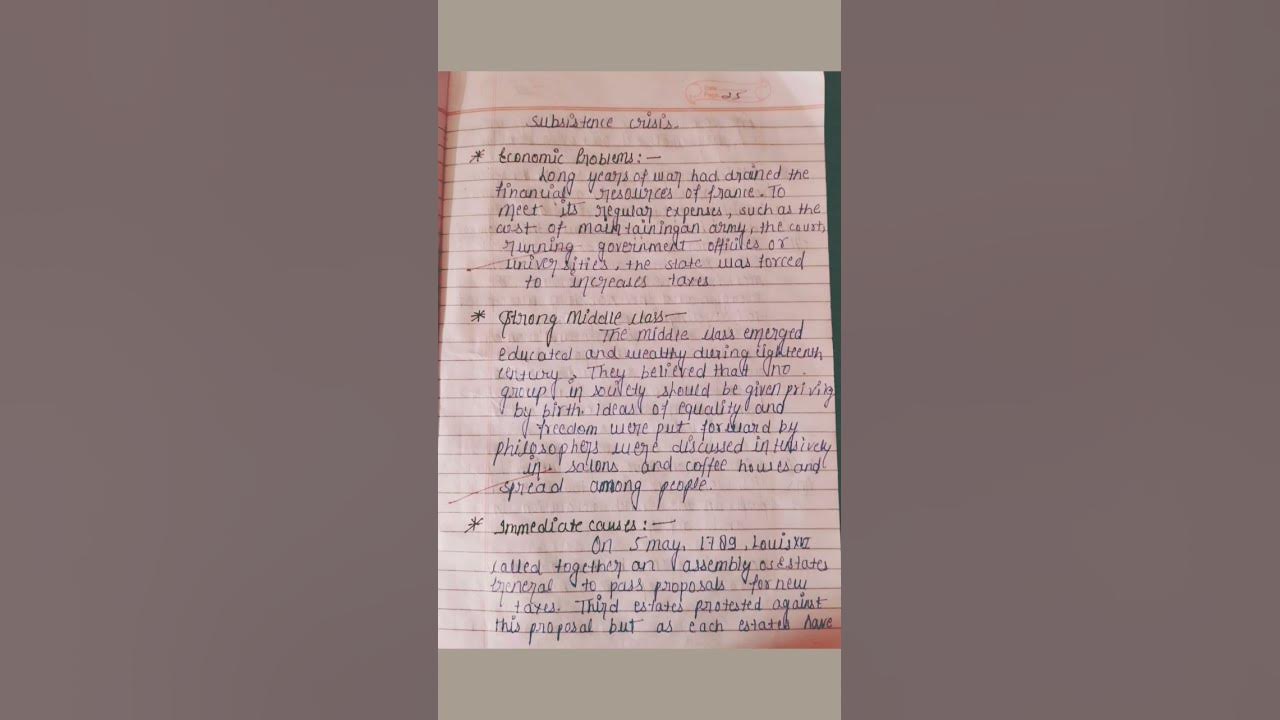 25
Subsistence crisis.
* Economic Problems:—
Long years of war had drained the
financial resources of france. To
meet its regular expenses, such as the
cost of maintainingan army, the court,
running government offices or
universities, the state was forced
to increases taxes
* Strong Middle class—
The middle class emerged
educated and wealthy during eighteenth
century. They believed that no
group in society should be given privileg
by birth. Ideas of equality and
freedom were put forward by
philosophers were discussed intensively
in salons and coffee houses and
spread among people.
* Immediate causes:—
On 5 may, 1789, Louis XVI
called together an assembly of Estates
General to pass proposals for new
taxes. Third estates protested against
this proposal but as each estates have